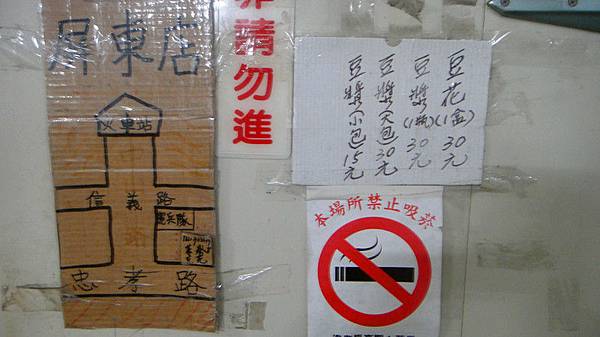 屏東店
火車站
信義路
憲兵隊
路
忠孝路
非請勿進
豆花(1盒)30元
豆漿(1瓶)30元
豆漿大包30元
豆漿小包15元
本場所禁止吸菸